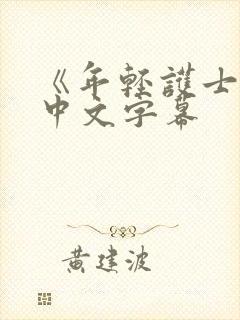 《年輕護士
中文字幕
黃建波